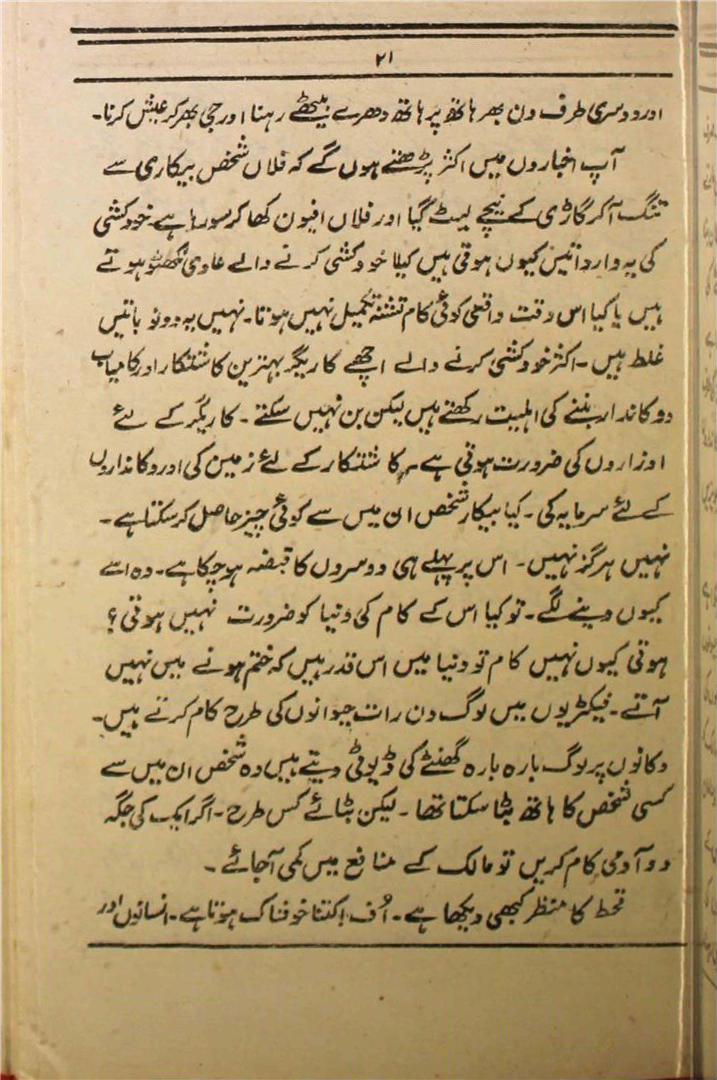 ۲۱
اور دوسری طرف دن بھر ہاتھ پر ہاتھ دھرے بیٹھے رہنا اور جی بھر کر عیش کرنا۔
آپ اخباروں میں اکثر پڑھتے ہوں گے کہ فلاں شخص بیکاری سے
تنگ آ کر گاڑی کے نیچے لیٹ گیا اور فلاں افیون کھا کر سو رہا ہے۔ خودکشی
کی یہ وارداتیں کیوں ہوتی ہیں کیا خودکشی کرنے والے عادی نکھٹو ہوتے
ہیں یا کیا اس وقت واقعی کوئی کام تشنہ تکمیل نہیں ہوتا۔ نہیں یہ دونو باتیں
غلط ہیں۔ اکثر خودکشی کرنے والے اچھے کاریگر بہترین کاشتکار اور کامیاب
دوکاندار بننے کی اہلیت رکھتے ہیں لیکن بن نہیں سکتے۔ کاریگر کے لئے
اوزاروں کی ضرورت ہوتی ہے، کاشتکار کے لئے زمین کی اور دکانداروں
کے لئے سرمایہ کی۔ کیا بیکار شخص ان میں سے کوئی چیز حاصل کر سکتا ہے۔
نہیں ہرگز نہیں۔ اس پر پہلے ہی دوسروں کا قبضہ ہو چکا ہے۔ وہ اسے
کیوں دینے لگے۔ تو کیا اس کے کام کی دنیا کو ضرورت نہیں ہوتی؟
ہوتی کیوں نہیں کام تو دنیا میں اس قدر ہیں کہ ختم ہونے میں نہیں
آتے۔ فیکٹریوں میں لوگ دن رات حیوانوں کی طرح کام کرتے ہیں۔
دکانوں پر لوگ بارہ بارہ گھنٹے کی ڈیوٹی دیتے ہیں وہ شخص ان میں سے
کسی شخص کا ہاتھ بٹا سکتا تھا۔ لیکن بٹائے کس طرح۔ اگر ایک کی جگہ
دو آدمی کام کریں تو مالک کے منافع میں کمی آ جائے۔
قحط کا منظر کبھی دیکھا ہے۔ اُف! کتنا خوفناک ہوتا ہے۔ انسانوں اور